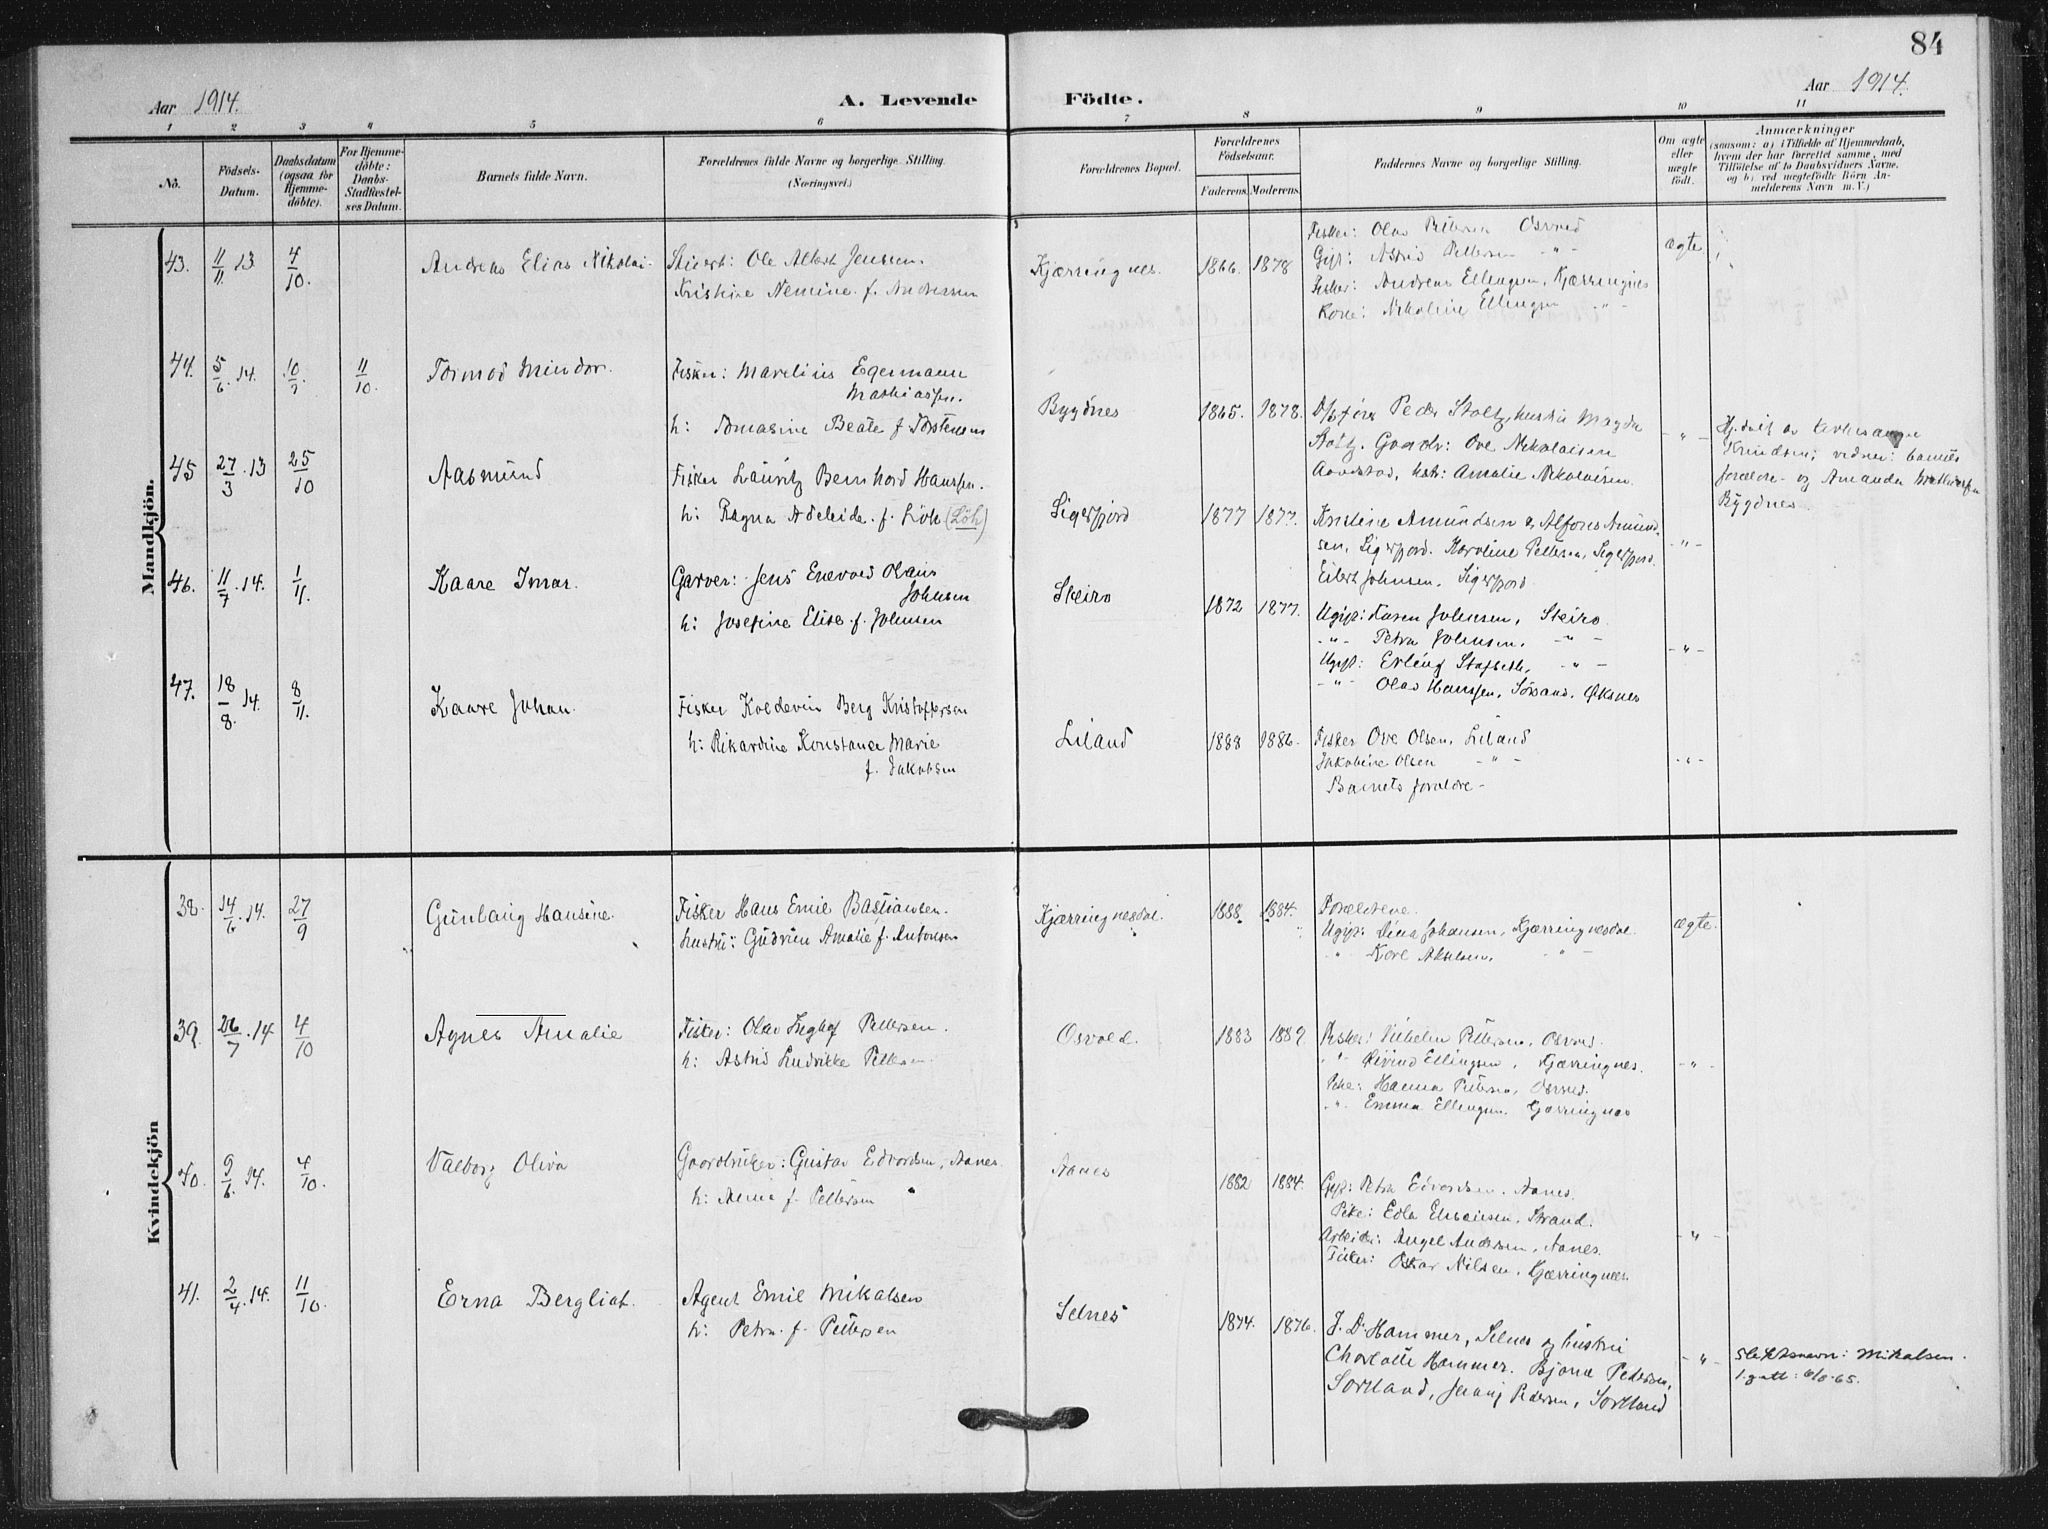 84
Aar 1914.
A. Levende Födte.
Aar 1914.
1 2 3 4 5 6 7 8 9 10 11
No.
Födsels-Datum.
Daabsdatum (ogsaa for Hjemme-döbte).
For Hjemme-döbte: Daabs-Stadfæstel-ses Datum.
Barnets fulde Navn.
Forældrenes fulde Navne og borgerlige Stilling. (Næringsvei.)
Forældrenes Bopæl.
Forældrenes Födselsaar.
Faderens. Moderens.
Faddernes Navne og borgerlige Stilling.
Om ægte eller uægte födt.
Anmærkninger
(saasom: a) i Tilfælde af Hjemmedaab,
hvem der har forrettet samme, med
Tilföielse af to Daabsvidners Navne.
og b) ved uægtefödte Börn An-
melderens Navn m. V.)
Mandkjön.
43. 11/11 13 4/10. Andreas Elias Nikolai. Stuert: Ole Albert Jenssen. Kjærringnes. 1866. 1878 Fisker: Olav Pettersen Osvold ægte
Kristine Nemine f. Andersen
Gift: Astrid Pettersen - " -
Fisker: Andreas Ellingsen, Kjærringnes
Kone: Nikoline Ellingsen - " -
44. 5/6. 14. 10/7. 11/10. Tormod Mindor. Fisker: Marelius Egermann Mathiassen.
h: Tomasine Beate f. Torstensen
Bygdnes 1865. 1878. Peder Stoltz, hustru Magda
Stoltz. Gaardbr: Ove Nikolaisen
Aarestad, hstr: Amalie Nikolaisen. - " -
Hj.døbt av kirkesanger
Knudsen; vidner: barnets
forældre - og Amanda Mathiassen
Bygdnes.
45 27/3 . 13 25/10 Aasmund Fisker Lauritz Bernhard Hanssen.
h: Ragna Adeleide f. Löh (Löh)
Sigerfjord 1877 1877. Kristine Amundsen & Alfons Amund-
sen, Sigerfjord. Karoline Pettersen, Sigerfjord.
Eilert Johnsen, Sigerfjord - " -
46. 11/7 . 14. 1/11. Kaare Imar. Garver: Jens Enevold Olaus Johnsen
h: Josefine Elise f. Johnsen
Steiro 1872 1877. Ugift: Karen Johnsen, Steiro.
- " - Petra Johnsen, - " -
Ugift: Erling Stafseth, - " -
- " - Olav Hanssen, Sörsand, Øksnes
- " -
47. 18/8. 14. 8/11. Kaare Johan. Fisker Koldevin Berg Kristoffersen
h: Rikardine Konstance Marie
f. Jakobsen
Liland 1888 1886. Fisker Ove Olsen, Liland
Jakobine Olsen - " -
Barnets forældre -
- " -
Kvindekjön
38. 14/6 . 14. 27/9 Gunlaug Hansine. Fisker Hans Emil Bastiansen.
hustru: Gudrun Amalie f. Antonsen
Kjærringnesdal. 1888. 1884. Forældrene.
Ugift: Dina Johansen, Kjærringnesdal
" Kore Akselsen, - " -
ægte.
39. 26/7 . 14 4/10 Agnes Amalie Fisker: Olav Inghof Pettersen.
h: Astrid Ludvikke Pettersen
Osvold. 1883 1889 Fisker: Vilhelm Pettersen, Osvold.
" Eivind Ellingsen, Kjærringnes.
Pike: Hanna Pettersen, Osvold.
" Emma Ellingsen. Kjærringnes
- " -
40. 9/6. 14. 4/10. Valborg Oliva Gaardbruker: Gustav Edvardsen, Aanes.
h: Anna f. Pettersen "
Aanes 1882 1884. Gift: Petra Edvardsen. Aanes.
Pike: Edla Eliseussen, Strand.
Arbeider: Angel Andersen, Aanes.
Fisker: Oskar Nilsen, Kjærringnes.
- " -
41. 2/4. 14. 11/10. Erna Bergliot. Agent Emil Mikalsen
h: Petra f. Pettersen
Selnes 1874. 1876. J. D. Hammer, Selnes og hustru
Charlotte Hammer. Bjarne Pedersen,
Sortland, Jenny Pedersen, Sortland
- " -
Slektsnavn: Mikalsen.